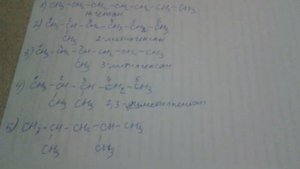 1) CH₃-CH₂-CH₂-CH₂-CH₂-CH₂-CH₃
н-гептан
2) CH₃-CH-CH₂-CH₂-CH₂-CH₃
CH₃ 2-метилгексан
3) CH₃-CH₂-CH-CH₂-CH₂-CH₃
CH₃ 3-метилгексан
4) CH₃-CH-CH-CH₂-CH₃
CH₃ CH₃ 2,3-диметилпентан
5) CH₃-CH-CH₂-CH-CH₃
CH₃ CH₃